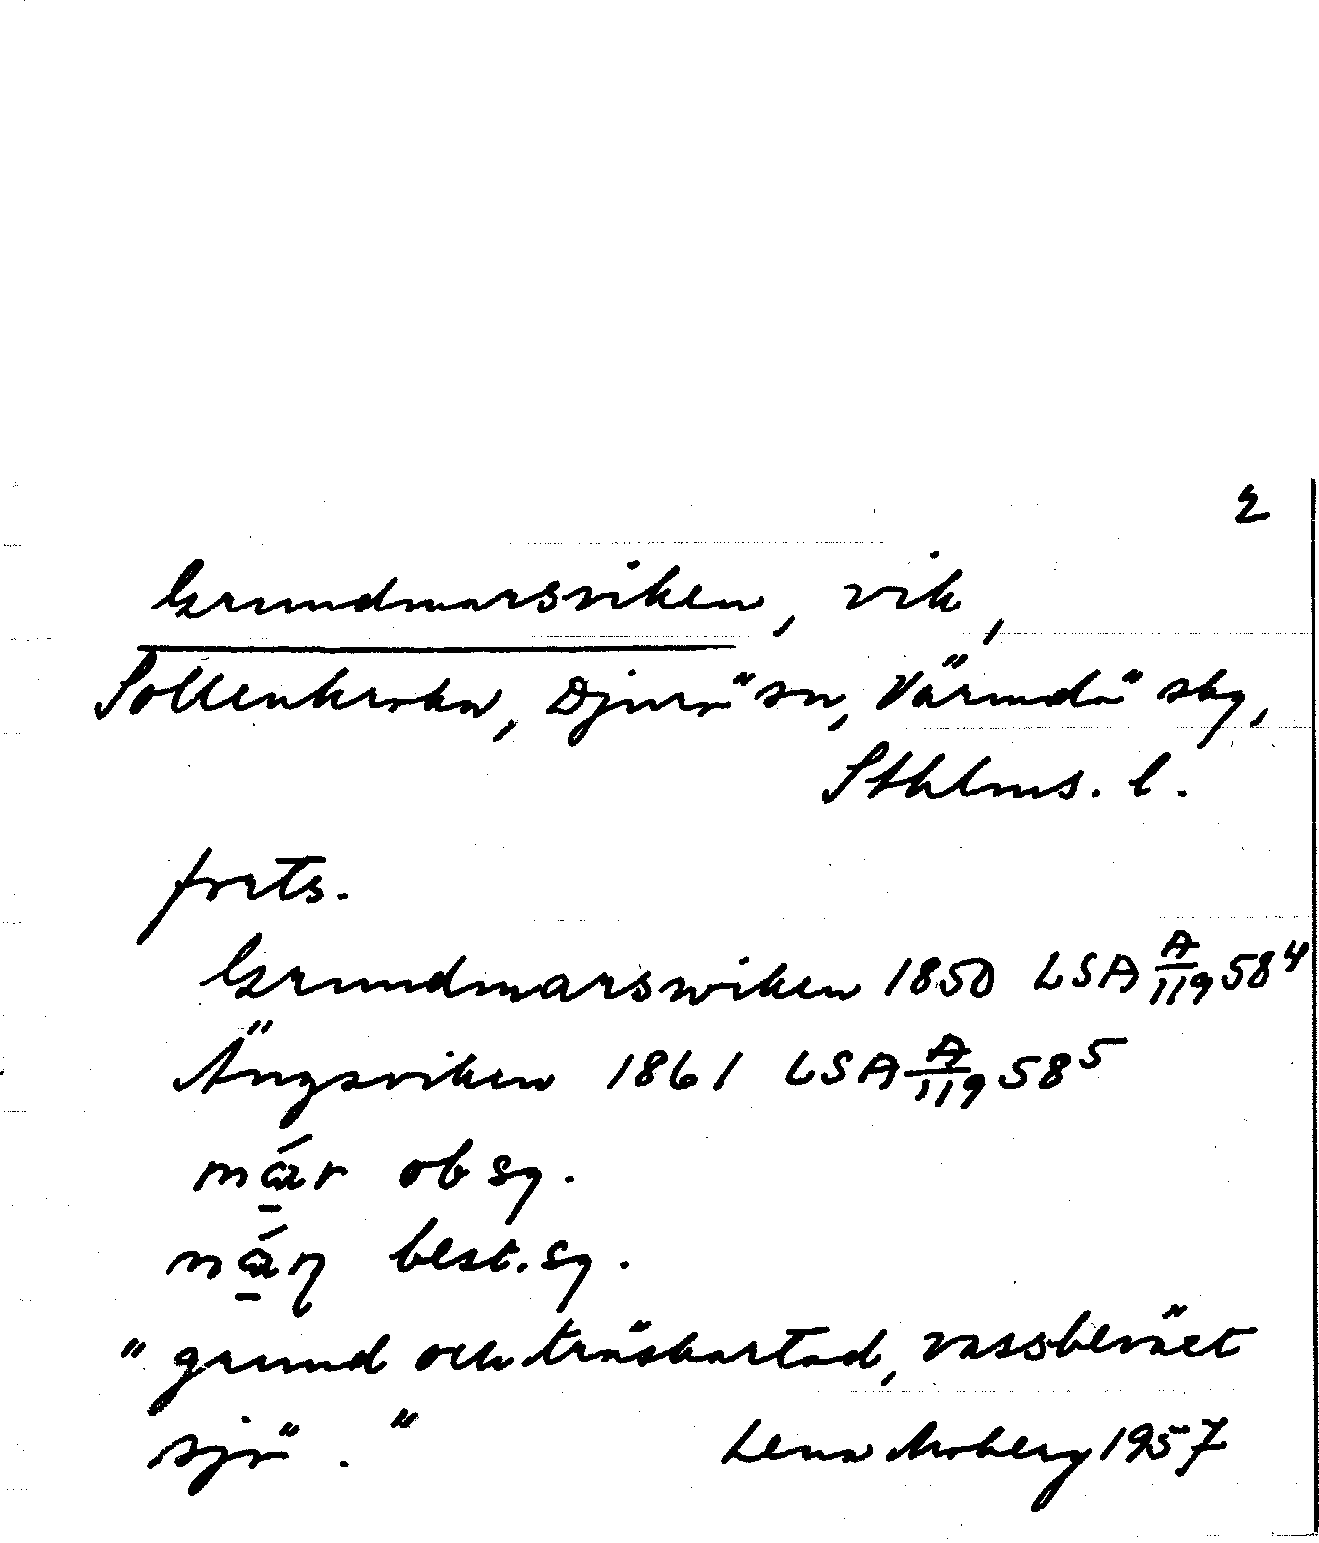 2
Grundmarsviken, vik,
Sollenkroka, Djurö sn, Värmdö sky,
Sthlms. l.
forts.
Grundmarswiken 1850 LSA A/119 58⁴
Ängsviken 1861 LSA A/119 58⁵
már ob sg.
best. sg.
" grund och träskartad, vassbeväxt
sjö . "
Lena Moberg 1957